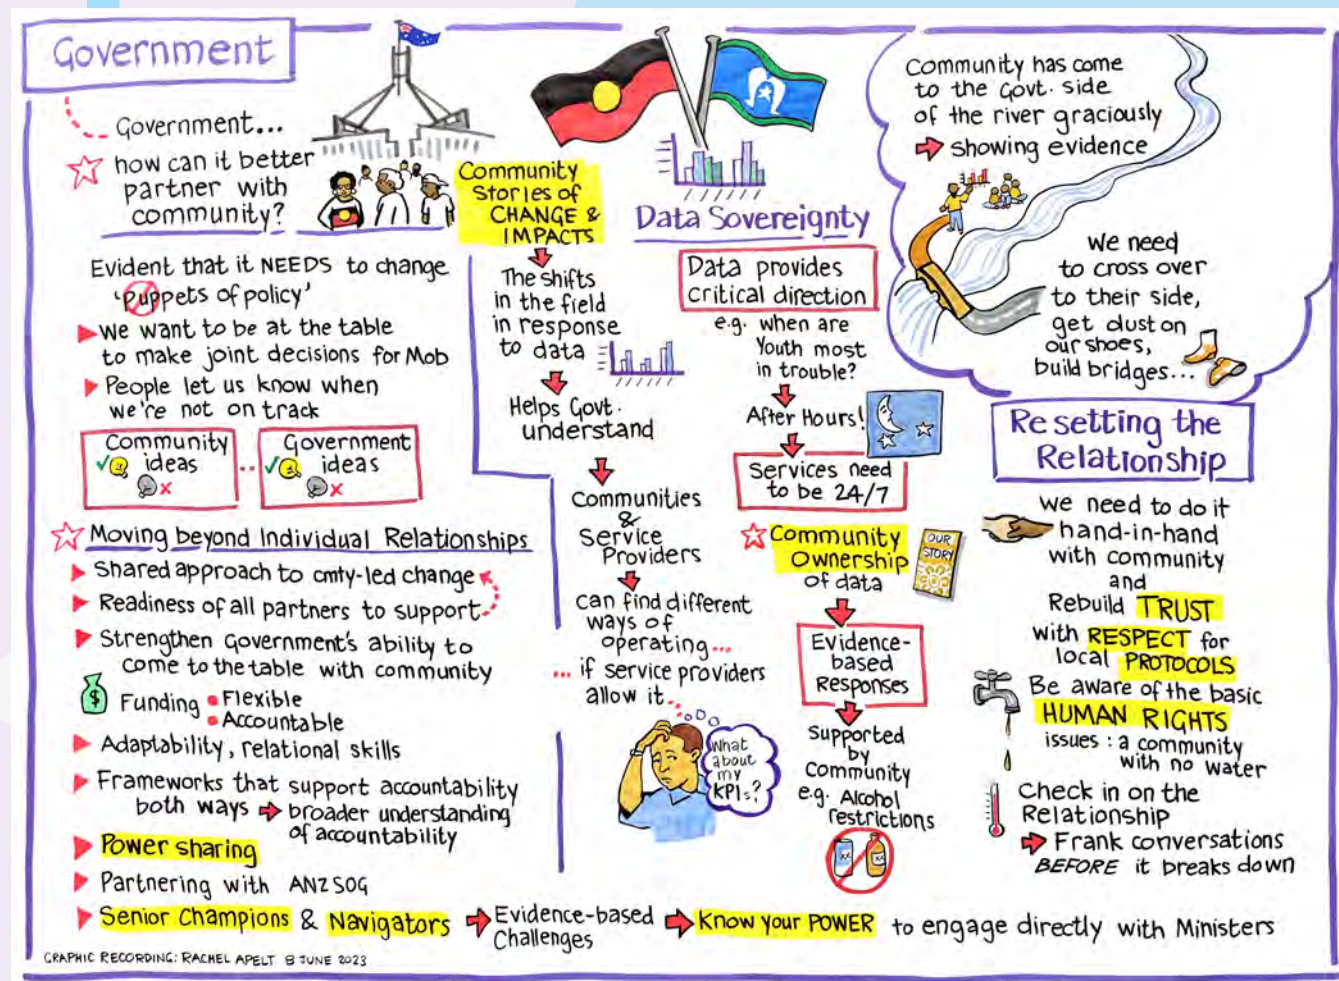 Government
Government...
how can it better
partner with
community?
Evident that it NEEDS to change
'puppets of policy'
We want to be at the table
to make joint decisions for Mob
People let us know when
we're not on track
Community
ideas
Government
ideas
Moving beyond Individual Relationships
Shared approach to cmty-led change
Readiness of all partners to support
Strengthen Government's ability to
come to the table with community
$
Funding • Flexible
• Accountable
Adaptability, relational skills
Frameworks that support accountability
both ways → broader understanding
of accountability
Power sharing
Partnering with ANZSOG
Senior Champions & Navigators → Evidence-based
Challenges → Know your POWER to engage directly with Ministers
Community
Stories of
CHANGE &
IMPACTS
The shifts
in the field
in response
to data
Helps Govt.
understand
Communities
&
Service
Providers
can find different
ways of
operating...
... if service providers
allow it...
What
about
my
KPIs?
Data Sovereignty
Data provides
critical direction
e.g. when are
Youth most
in trouble?
After Hours!
Services need
to be 24/7
Community
Ownership
of data
OUR
STORY
Evidence-
based
Responses
Supported
by
Community
e.g. Alcohol
restrictions
XX
XX
Community has come
to the Govt. side
of the river graciously
→ showing evidence
We need
to cross over
to their side,
get dust on
our shoes,
build bridges...
Resetting the
Relationship
We need to do it
hand-in-hand
with community
and
Rebuild TRUST
with RESPECT for
local PROTOCOLS
Be aware of the basic
HUMAN RIGHTS
issues : a community
with no water
Check in on the
Relationship
→ Frank conversations
BEFORE it breaks down
GRAPHIC RECORDING: RACHEL APELT 8 JUNE 2023